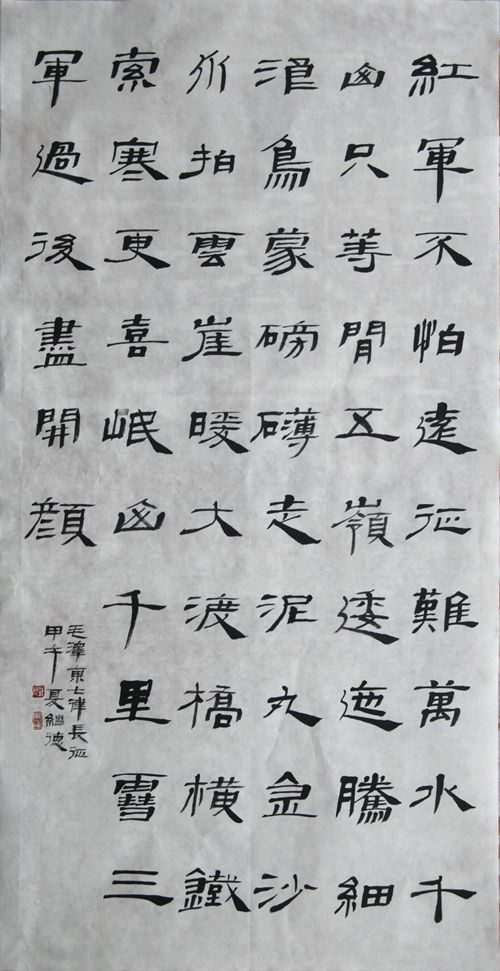 紅軍不怕遠征難萬水千
山只等閒五嶺逶迤騰細
浪烏蒙磅礴走泥丸金沙
水拍雲崖暖大渡橋橫鐵
索寒更喜岷山千里雪三
軍過後盡開顏
毛澤東七律長征
甲午夏繼德